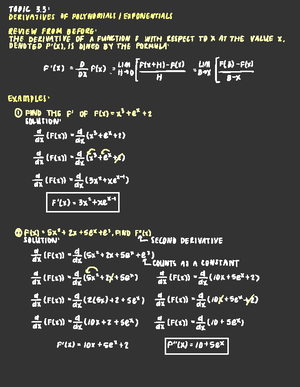 TOPIC 3.3:
DERIVATIVES OF POLYNOMIALS / EXPONENTIALS
REVIEW FROM BEFORE:
THE DERIVATIVE OF A FUNCTION F WITH RESPECT TO X AT THE VALUE X,
DENOTED F'(X), IS DINED BY THE FORMULA:
F'(X) = D/DX F(X) = LIM H→0 [F(X+H)-F(X)/H] = LIM B→X [F(B)-F(X)/B-X]
EXAMPLES:
① FIND THE F' OF F(X) = X³ + e² + 2
SOLUTION:
d/dX (F(X)) = d/dX (X³ + e² + 2)
d/dX (F(X)) = d/dX (X³ + e² + 2)
d/dX (F(X)) = d/dX (3X² + Xe^X-1)
F'(X) = 3X² + Xe^X-1
② F(X) = 5X² + 2X + 5e^X + e³, FIND F"(X)
SOLUTION: SECOND DERIVATIVE
d/dX (F(X)) = d/dX (5X² + 2X + 5e^X + e³)
COUNTS AS A CONSTANT
d/dX (F(X)) = d/dX (5X² + 2X + 5e^X) d/dX (F(X)) = d/dX (10X + 5e^X + 2)
d/dX (F(X)) = d/dX (2(5X) + 2 + 5e^X) d/dX (F(X)) = d/dX (10X + 5e^X + 2)
d/dX (F(X)) = d/dX (10X + 2 + 5e^X) d/dX (F(X)) = d/dX (10 + 5e^X)
F'(X) = 10X + 5e^X + 2 F"(X) = 10 + 5e^X